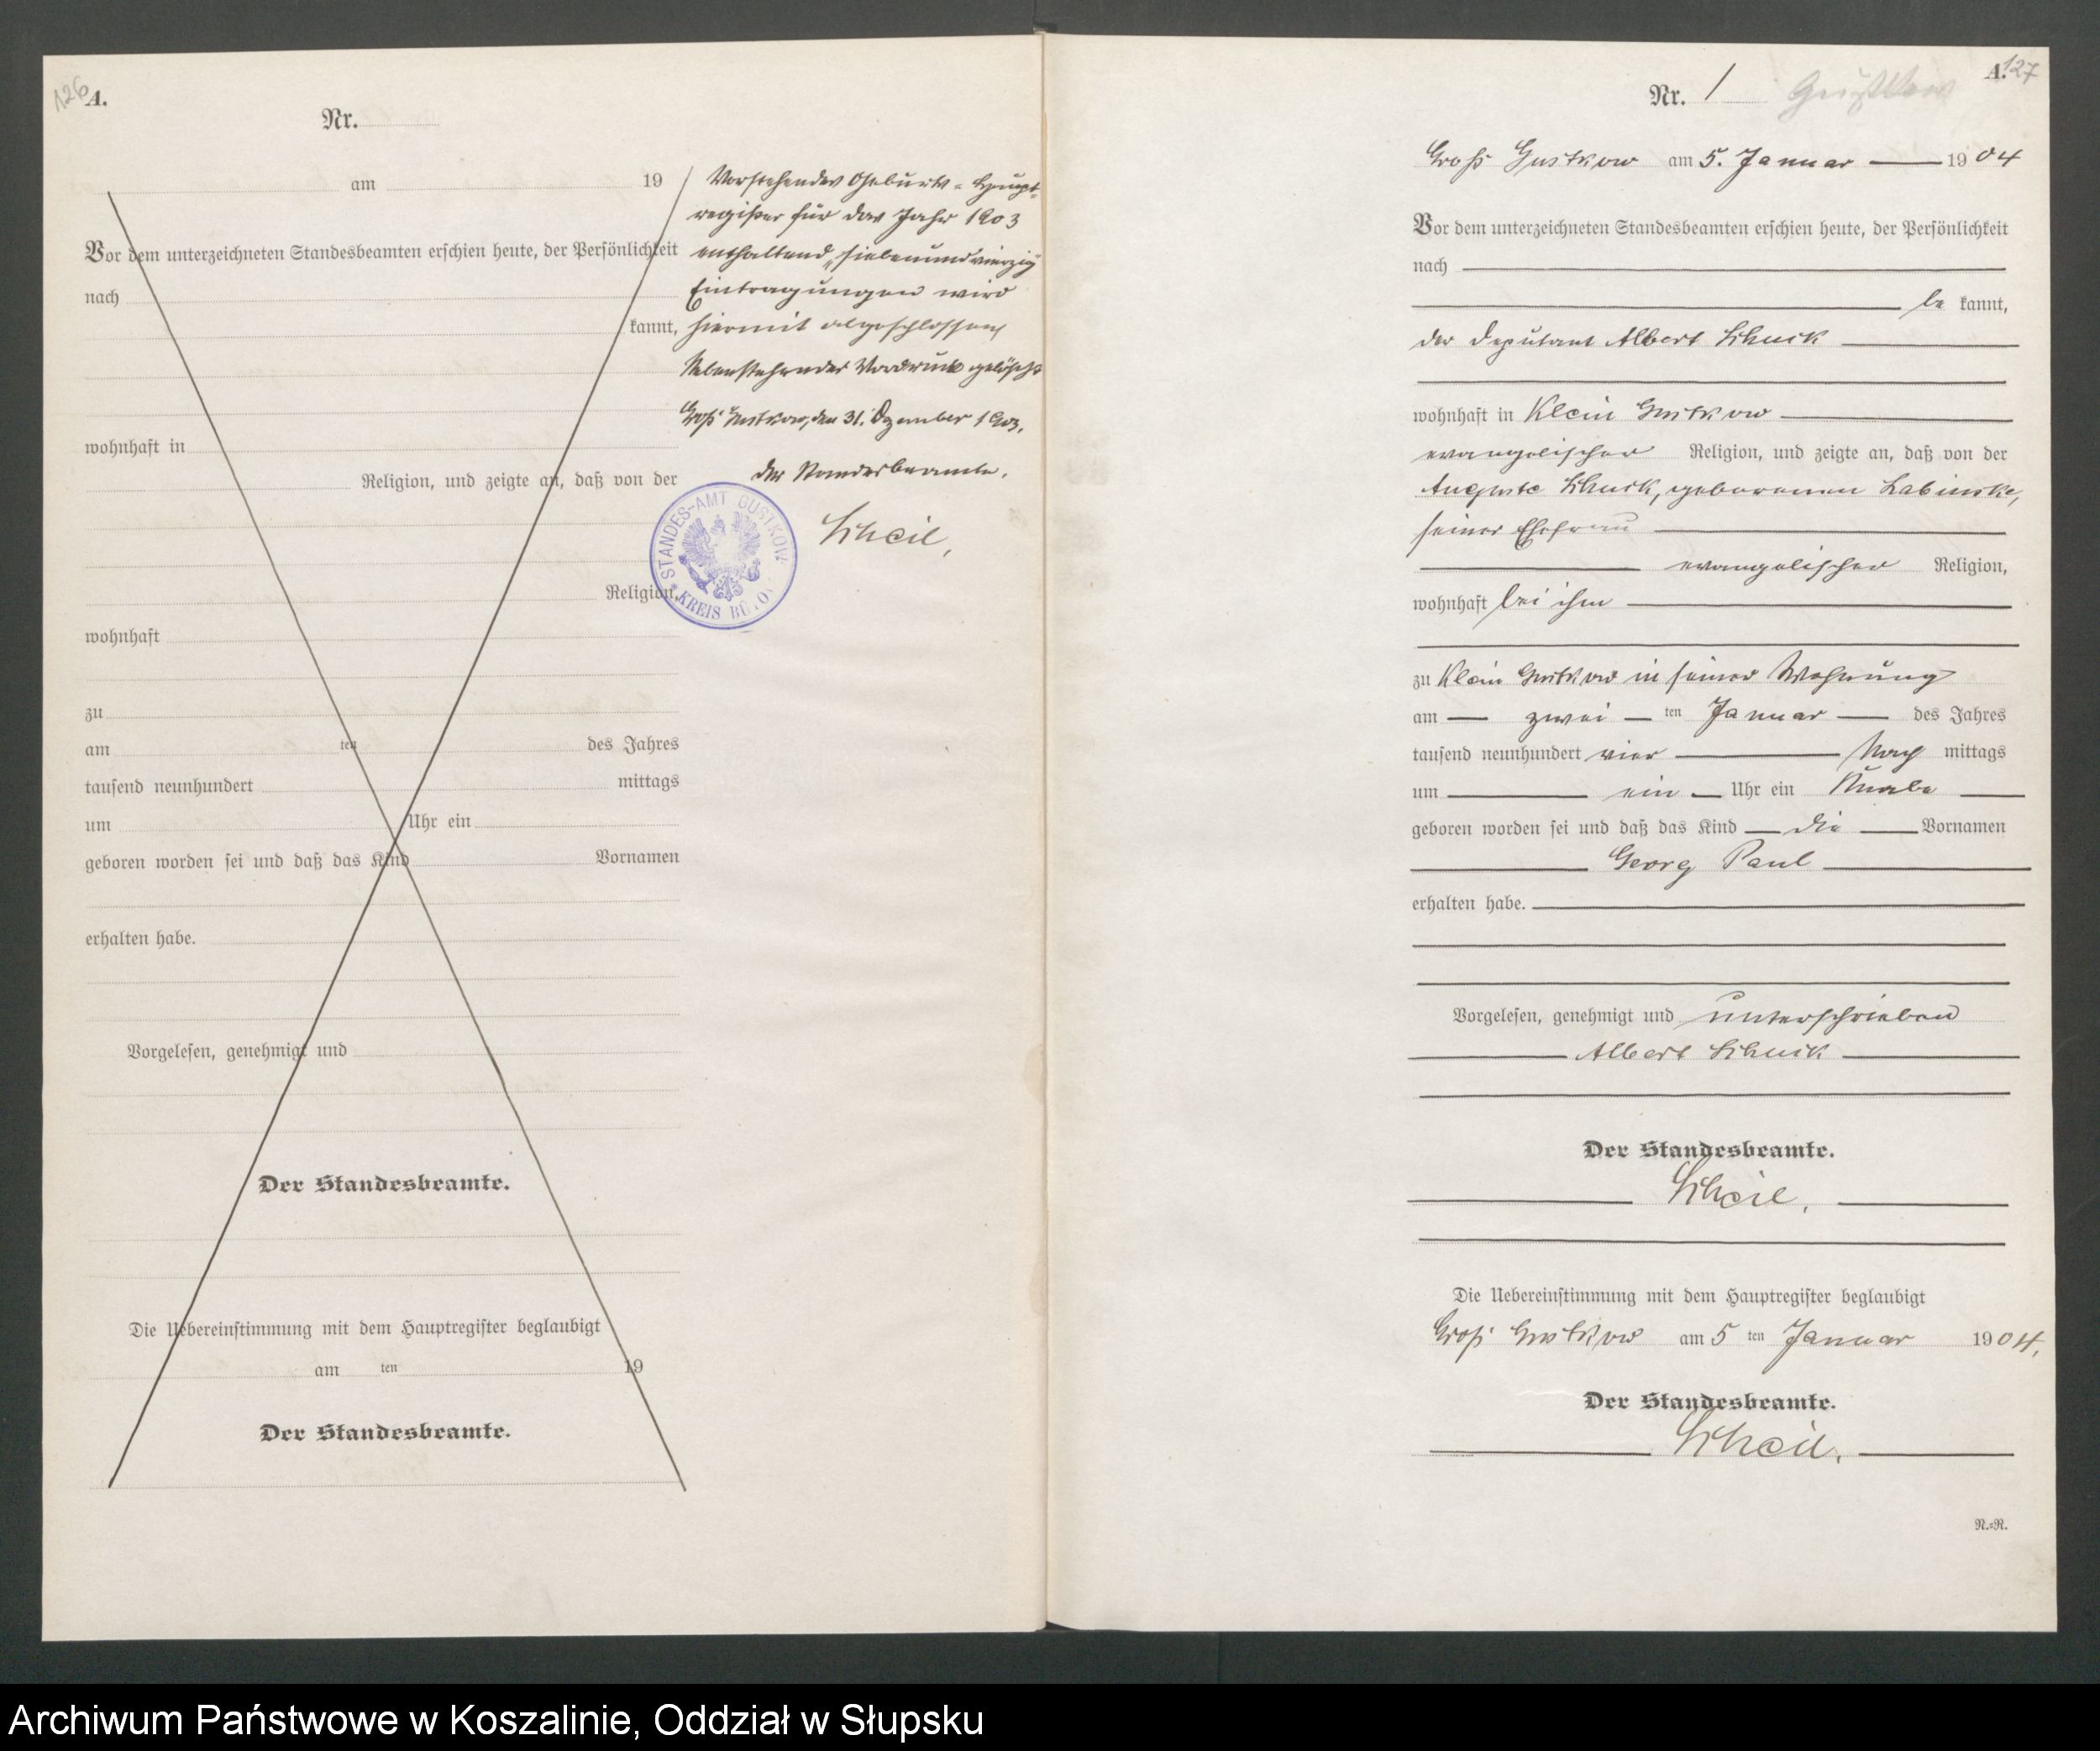 126
A.
Nr.
am 19
Vor dem unterzeichneten Standesbeamten erschien heute, der Persönlichkeit
nach
kannt,
wohnhaft in
Religion, und zeigte an, daß von der
Religion,
wohnhaft
zu
am ten des Jahres
tausend neunhundert mittags
um Uhr ein
geboren worden sei und daß das Kind Vornamen
erhalten habe.
Vorgelesen, genehmigt und
Der Standesbeamte.
Die Uebereinstimmung mit dem Hauptregister beglaubigt
am ten 19
Der Standesbeamte.
Vorstehendes Geburts-Haupt-
register für das Jahr 1903
enthaltend „siebenundvierzig"
Eintragungen wird
hiermit abgeschlossen
Nebenstehender Vordruck gelöscht
Groß Gustkow, den 31. Dezember 1903.
Der Standesbeamte.
Scheil.
STANDES-AMT GUSTKOW
KREIS BÜTOW
A. 127
Nr. 1 Gustkow
Groß Gustkow am 5. Januar 1904
Vor dem unterzeichneten Standesbeamten erschien heute, der Persönlichkeit
nach
be kannt,
der Deputant Albert Schuck
wohnhaft in Klein Gustkow
evangelischer Religion, und zeigte an, daß von der
Auguste Schuck, geborenen Labinske,
seiner Ehefrau
evangelischer Religion,
wohnhaft bei ihm
zu Klein Gustkow in seiner Wohnung
am zwei ten Januar des Jahres
tausend neunhundert vier Nach mittags
um ein Uhr ein Knabe
geboren worden sei und daß das Kind die Vornamen
Georg Paul
erhalten habe.
Vorgelesen, genehmigt und unterschrieben
Albert Schuck
Der Standesbeamte.
Scheil.
Die Uebereinstimmung mit dem Hauptregister beglaubigt
Groß Gustkow am 5 ten Januar 1904.
Der Standesbeamte.
Scheil.
N.=R.
Archiwum Państwowe w Koszalinie, Oddział w Słupsku